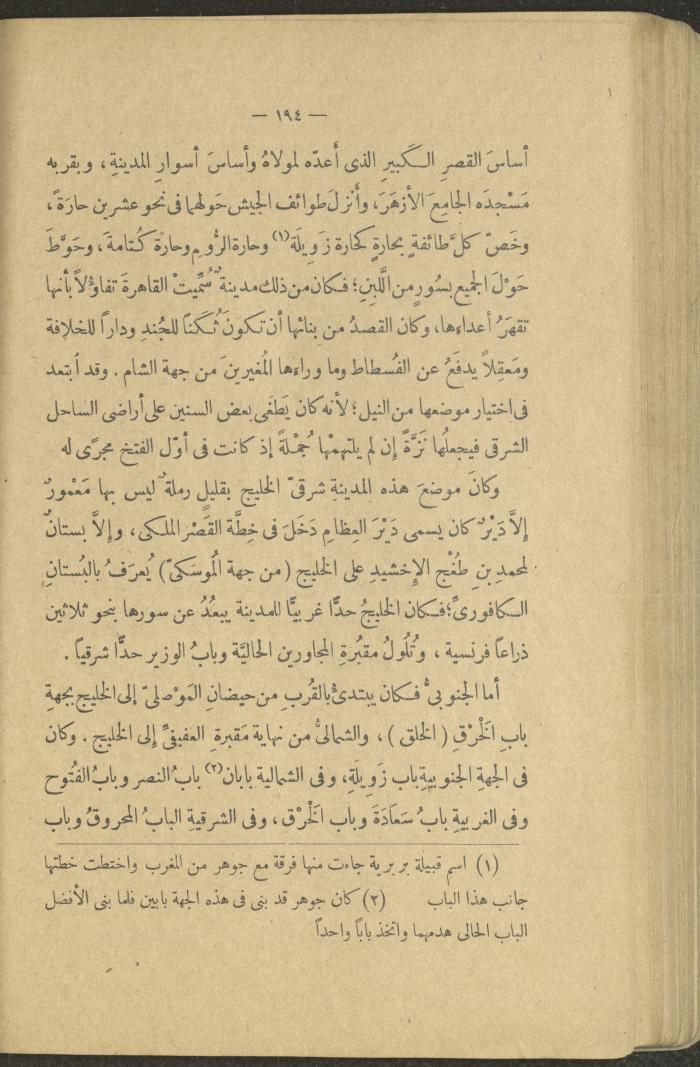 — ١٩٤ —
أساسَ القصرِ الكَبيرِ الذى أَعدّه لمولاهُ وأساسَ أسوارِ المدينةِ ، وبقربه
مَسْجدَه الجامِعَ الأزهَرَ، وأَنْزلَ طوائف الجيش حَولهما فى نحو عشرين حارَةً ،
وخَصّ كلَّ طائفةٍ بحارةٍ كحارة زَوِيلَة(١) وحارة الرُّوم وحارة كُتامةَ ، وحَوَّطَ
حَوْلَ الجميع بسُورٍ من اللَّبِنِ؛ فكان من ذلك مدينةٌ سُمِّيتْ القاهرةَ تفاؤلاً بأنها
تقهَرُ أعداءها، وكان القصدُ من بنائها أن تكونَ ثُكَنًا للجُندِ وداراً للخلافة
ومَعقِلاً يدفَعُ عن الفُسطاط وما وراءها المُغيرينَ من جهة الشام . وقد أبتعد
فى اختيار موضعها من النيل؛ لأنه كان يَطغَى بعض السنين على أراضى الساحل
الشرقى فيجعلُها نَزَّةً إن لم يلتهمْها جُمْلةً إذ كانت فى أوّل الفتح مجرًى له
وكانَ موضعَ هذه المدينةِ شرقىّ الخليج بقليلٍ رملةٌ ليس بها مَعْمورٌ
إلاَّ دَيْرٌ كان يسمى دَيْرَ العِظامِ دَخَلَ فى خِطَّة القَصْر الملكى، وإلاَّ بستانٌ
لمحمدِ بنِ طُغْج الإخشيدِ على الخليج (من جهة الُموسَكىّ) يُعرَفُ بالبُستانِ
الكافورىِّ؛ فكان الخليجُ حدًّا غربيًّا للمدينة يبعُدُ عن سورها بنحو ثلاثين
ذراعًا فرنسية ، وتُلُولُ مقبُرةِ المجاورين الحاليَّة وبابُ الوزير حدًّا شرقياً .
أما الجنوبىُّ فكان يبتدئُ بالقُربِ من حيضانِ المَوْصلىّ إلى الخليج بجهةِ
بابِ الخَرْقِ ( الخلق ) ، والشمالىُّ من نهاية مَقبرةِ العفيفىِّ إلى الخليج . وكان
فى الجهةِ الجنوبيةِ باب زَويلَةِ، وفى الشمالية بابان(٢) بابُ النصر وبابُ الفُتوح
وفى الغربيةِ بابُ سَعَادَةَ وباب الخَرْق ، وفى الشرقيةِ البابُ المحروقُ وباب
(١) اسم قبيلة بربرية جاءت منها فرقة مع جوهر من المغرب واختطت خطتها
جانب هذا الباب (٢) كان جوهر قد بنى فى هذه الجهة بابين فلما بنى الأفضل
الباب الحالى هدمهما واتخذ باباً واحداً